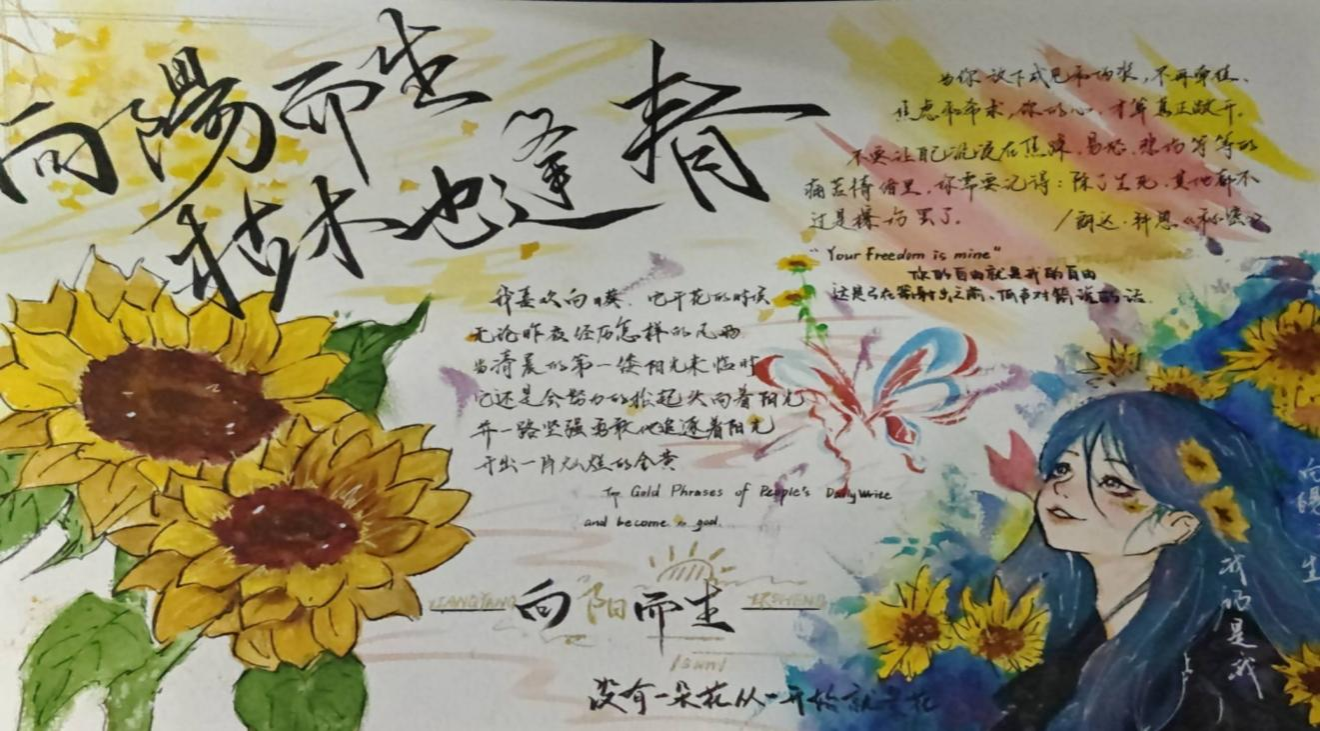 向陽而生
枯木也逢春
当你放下成见和伪装，不再牵挂、
焦虑和希求，你的心，才算真正敞开。
不要让自己沉浸在焦躁、易怒、悲伤等等的
痛苦情绪里，你需要记得：除了生死，其他都不
过是擦伤罢了。
"Your Freedom is mine"
你的自由就是我的自由
这是弓在箭射出之前，低声对箭说的话.
我喜欢向日葵，它开花的时候
无论昨夜经历怎样的风雨
当清晨的第一缕阳光来临时
它还是会努力的抬起头向着阳光
并一路坚强勇敢地追逐着阳光
开出一片灿烂的金黄
Top Gold Phrases of People's Daily Write
and become a god.
XIANGYANG 向阳而生 ERSHENG
/sun/
没有一朵花从一开始就是花
向
陽
生
我
仍
是
我